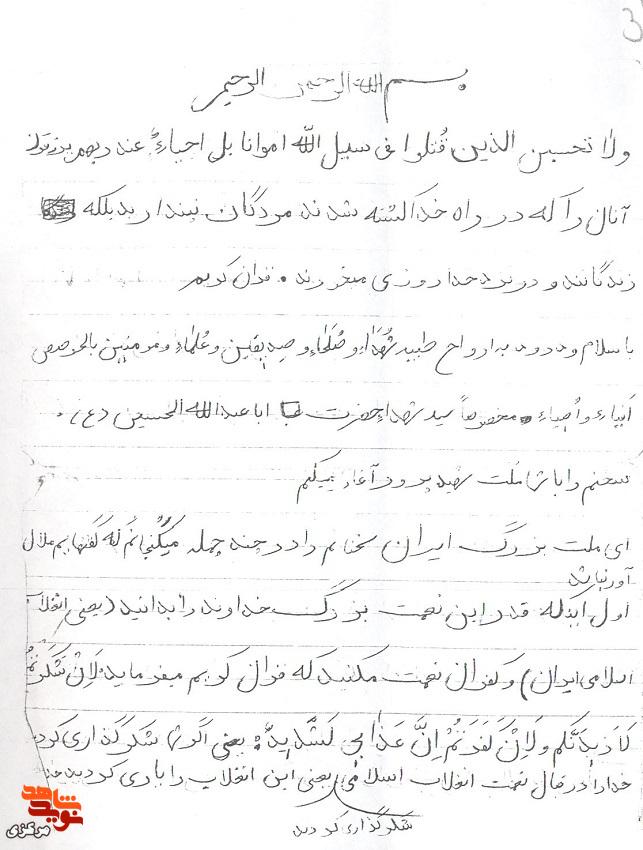 3
بسم الله الرحمن الرحیم
ولا تحسبن الذین قُتلوا فی سبیل الله امواتا بل احیاءٌ عند ربهم یرزقون
آنان را که در راه خدا کشته شدند مردگان نپندارید بلکه
زندگانند و در نزد خدا روزی میخورند . قران کریم
با سلام و درود به ارواح طیبه شُهَدٰاء و صُلَحٰاء و صدیقین و عُلماء و مومنین بالخوصص
اَنبیاء و اُصیاء مخصوصاً سید شهداء حضرت اباعبدالله الحسین (ع) .
سخنم را با شما ملت شهید پرور آغاز میکنم
ای ملت بزرگ ایران سخنانم را در چند جمله میگُنجانم که گفتهایم ملال
آور نباشد
اول اینکه قدر این نعمت بزرگ خداوند را بدانید (یعنی انقلاب
اسلامی ایران) و کفران نعمت مکنید که قران کریم میفرماید لَاِنْ شَکَرْتُمْ
لَاَزیدَنَّکم وَلَاِنْ کَفَرْتُمْ اِنَّ عَذابی لَشَدیدْ یعنی اگر شما شکرگذاری کردید
خدا را در قبال نعمت انقلاب اسلامی یعنی این انقلاب را یاری کردید
شکرگذاری کردید
نوید شاهد
مرکزی